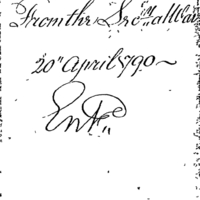 From the Secry at War
20th April 1790
Entd